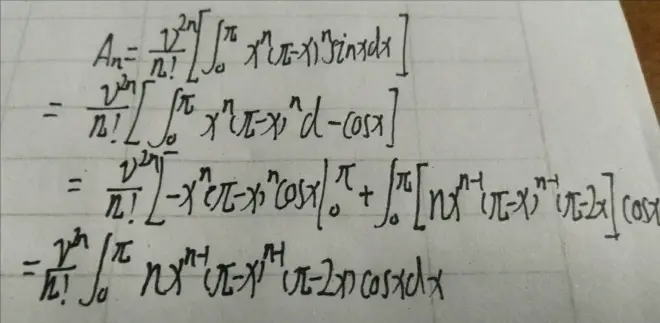 Aₙ = v²ⁿ/n! [∫₀^π xⁿ(π-x)ⁿ sinx dx]
= v²ⁿ/n! [∫₀^π xⁿ(π-x)ⁿ d -cosx]
= v²ⁿ/n! [-xⁿ(π-x)ⁿ cosx |₀^π + ∫₀^π [nxⁿ⁻¹(π-x)ⁿ⁻¹(π-2x] cosx
= v²ⁿ/n! ∫₀^π nxⁿ⁻¹(π-x)ⁿ⁻¹(π-2x) cosx dx